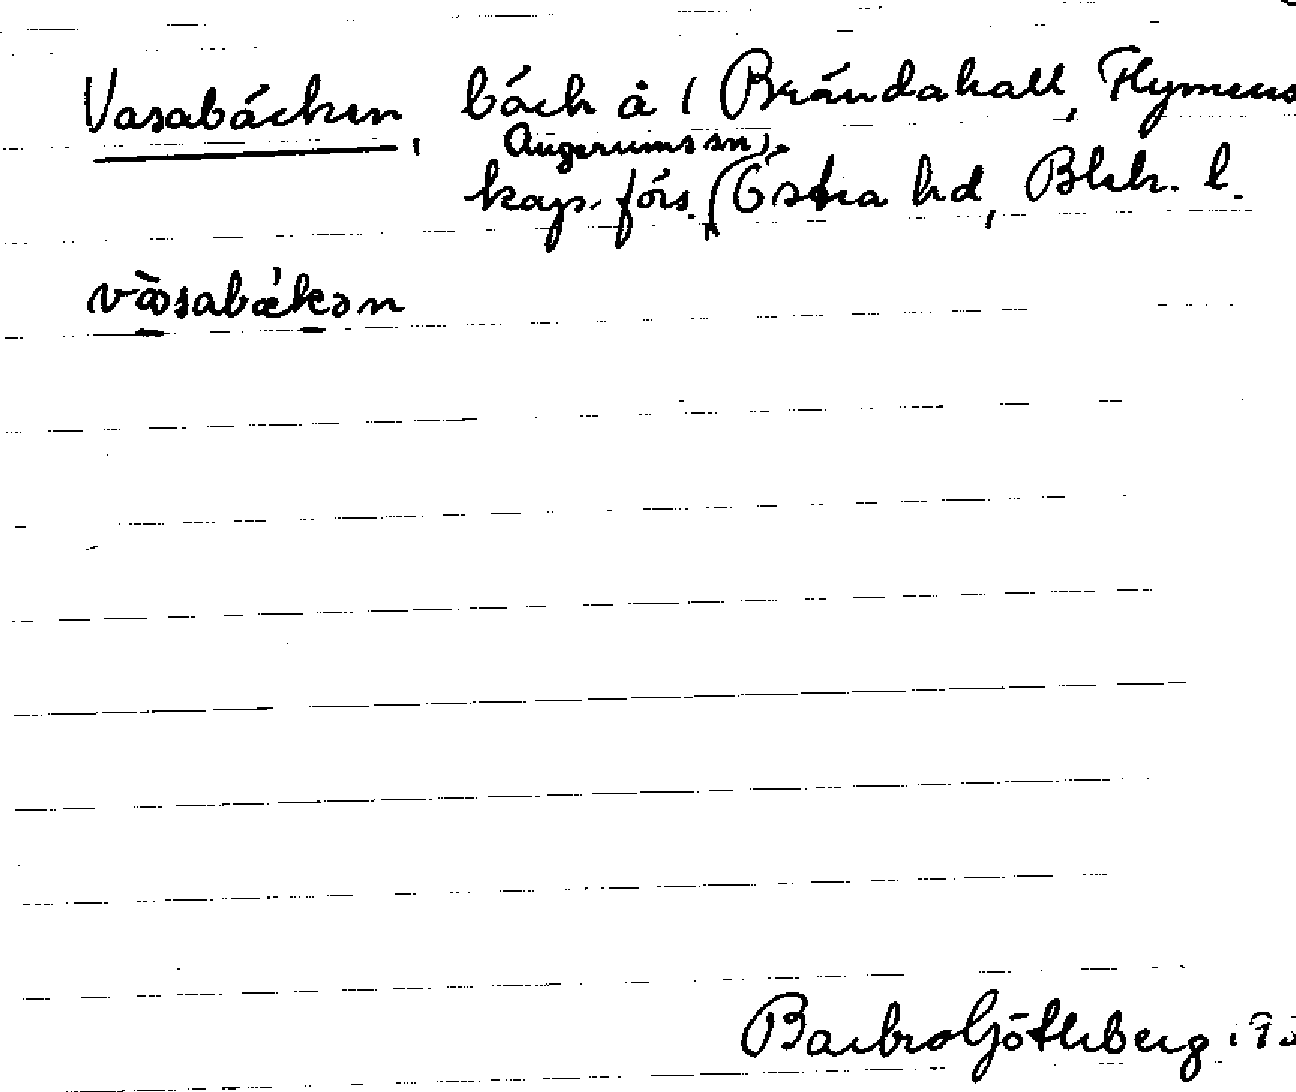 Vasabäcken, bäck å ( Brändahall, Flymens
Augerums sn).
kap. förs. (Östra hd, Blek. l.
vàsabǽkən
Barbro Göthberg 195